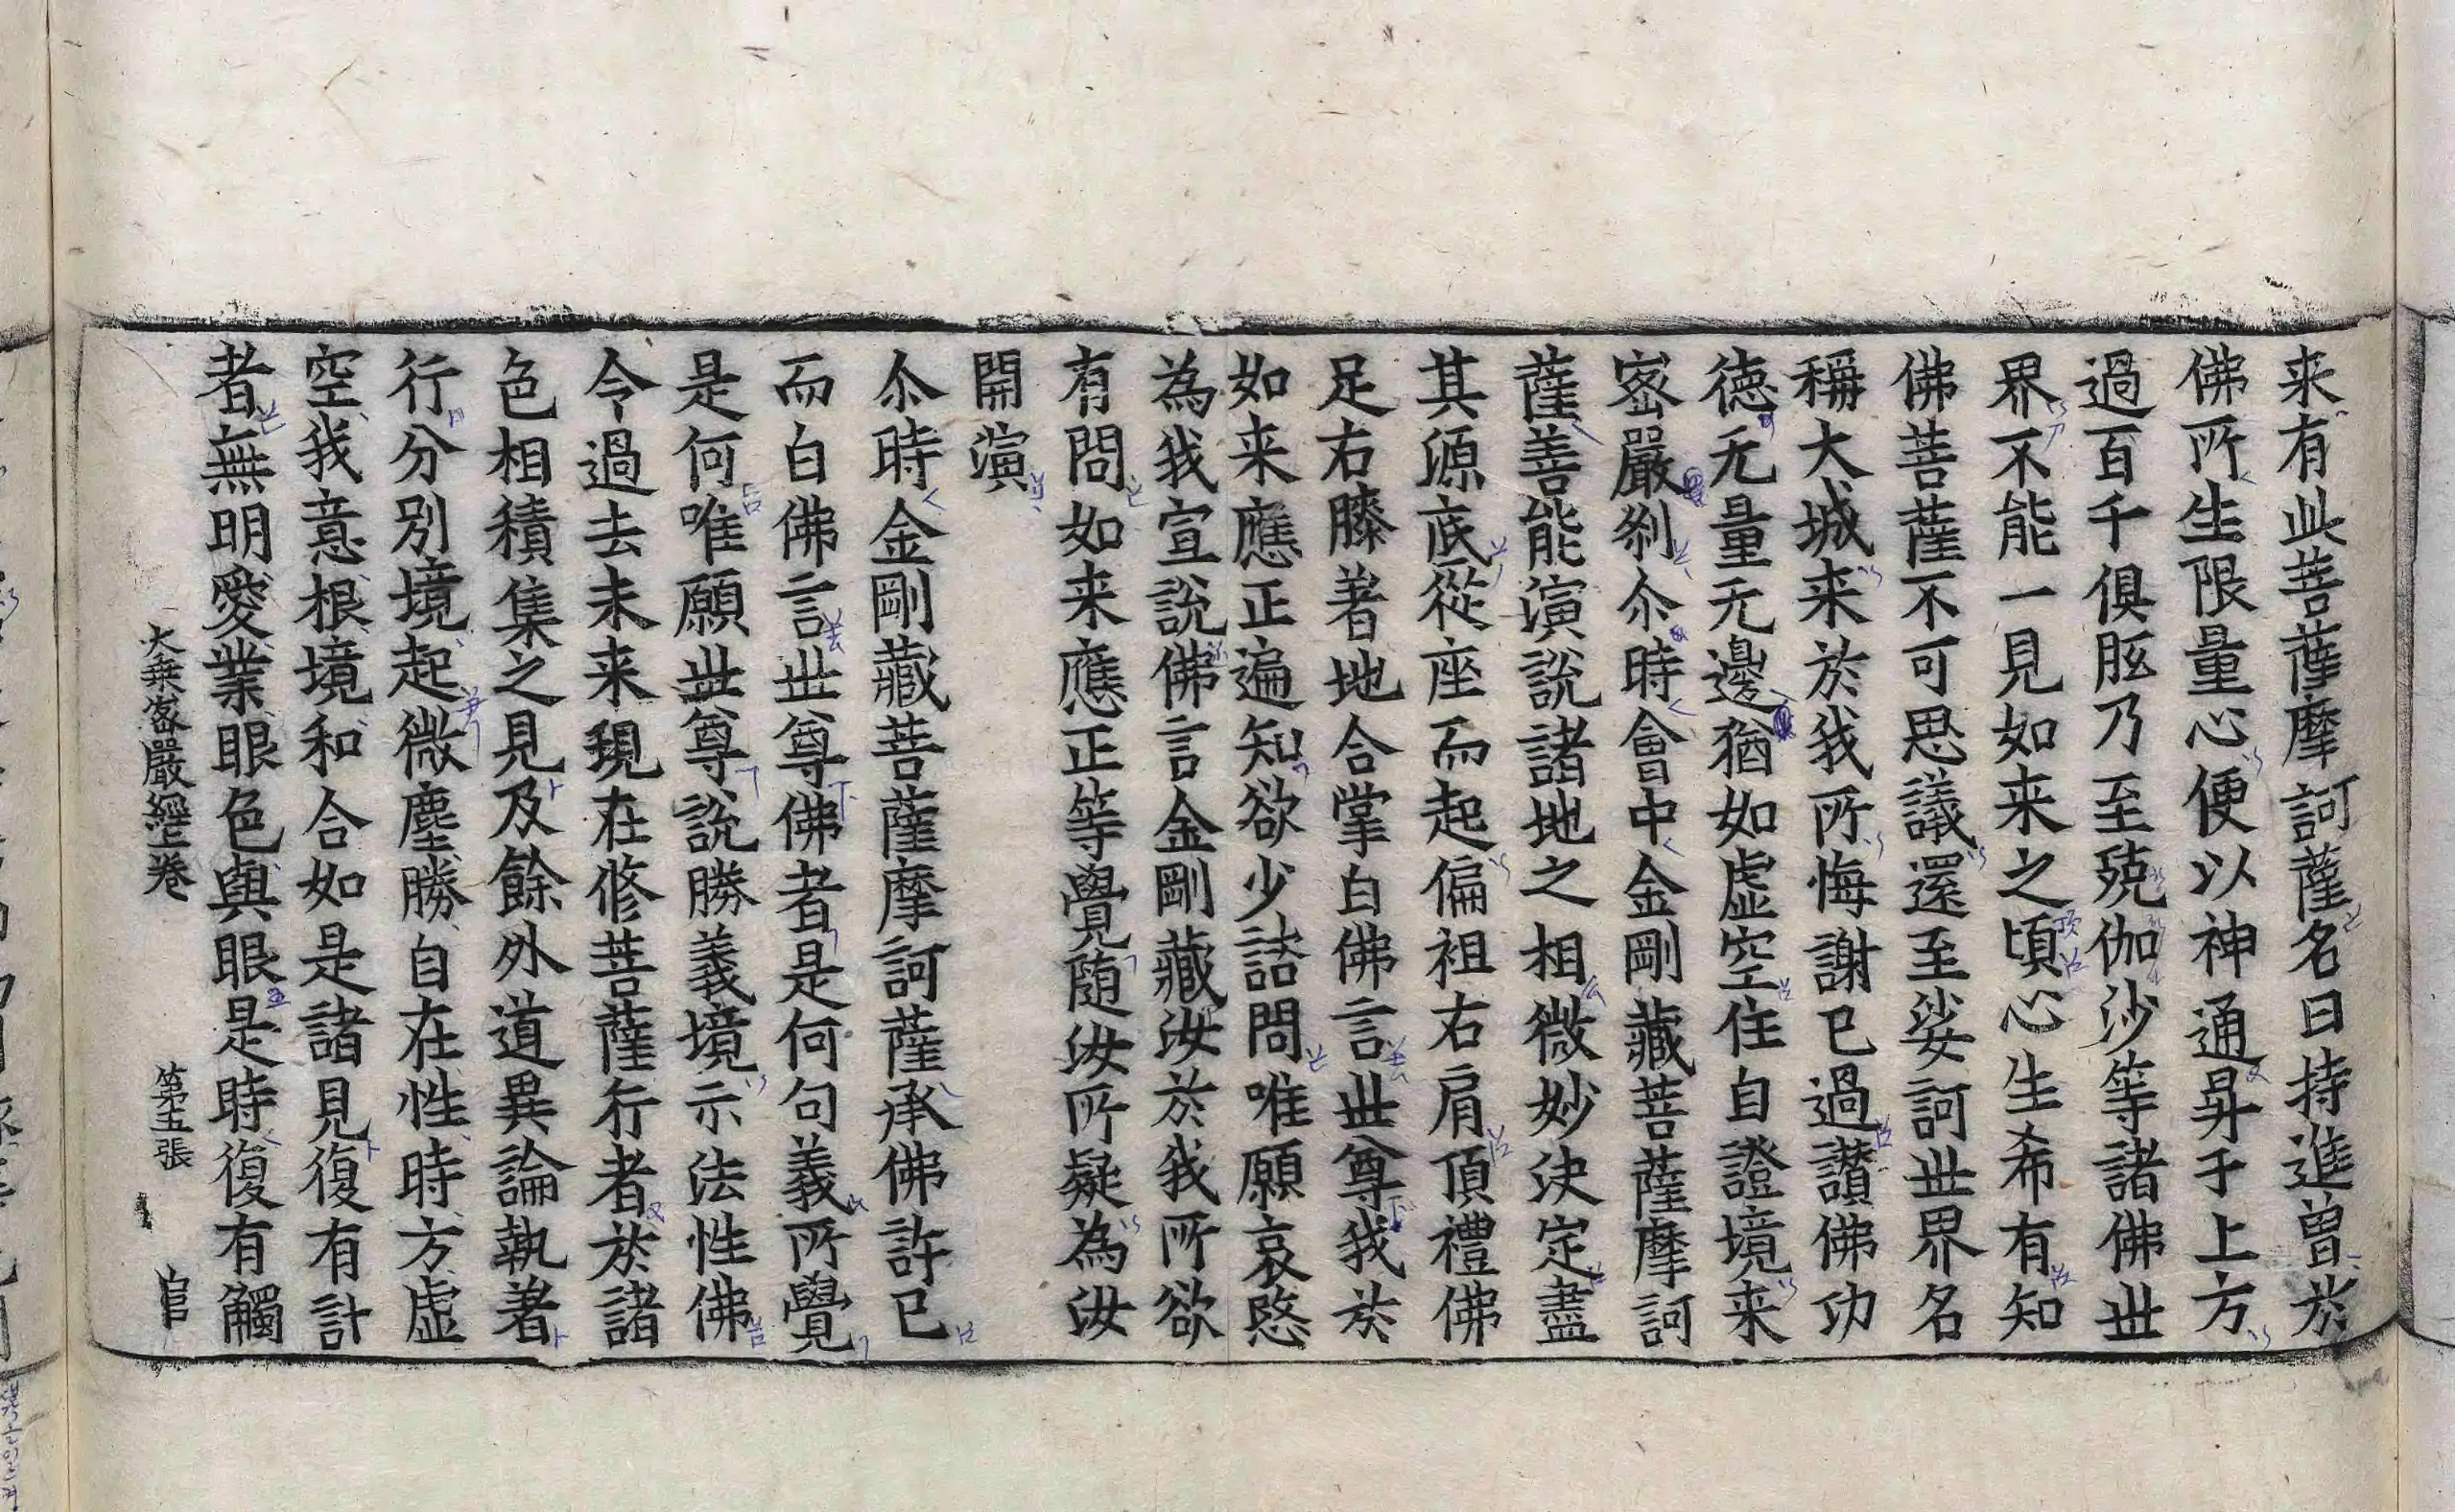 来有此菩薩摩訶薩名曰持進曾於
佛所生限量心便以神通昇于上方
過百千俱胝乃至殑伽沙等諸佛世
界不能一見如来之頃心生希有知
佛菩薩不可思議還至娑訶世界名
稱大城来於我所悔謝已過讃佛功
德无量无邊猶如虛空住自證境来
密嚴刹尒時會中金剛藏菩薩摩訶
薩善能演說諸地之相微妙決定盡
其源底從座而起偏袒右肩頂禮佛
足右膝著地合掌白佛言世尊我於
如来應正遍知欲少詰問唯願哀愍
為我宣說佛言金剛藏汝於我所欲
有問如来應正等覺随汝所疑為汝
開演
尒時金剛藏菩薩摩訶薩承佛許已
而白佛言世尊佛者是何句義所覺
是何唯願世尊說勝義境示法性佛
令過去未来現在修菩薩行者於諸
色相積集之見及餘外道異論執著
行分別境起微塵勝自在性時方虛
空我意根境和合如是諸見復有計
者無明愛業眼色與眼是時復有觸
大乗密嚴經上卷 第五張 官